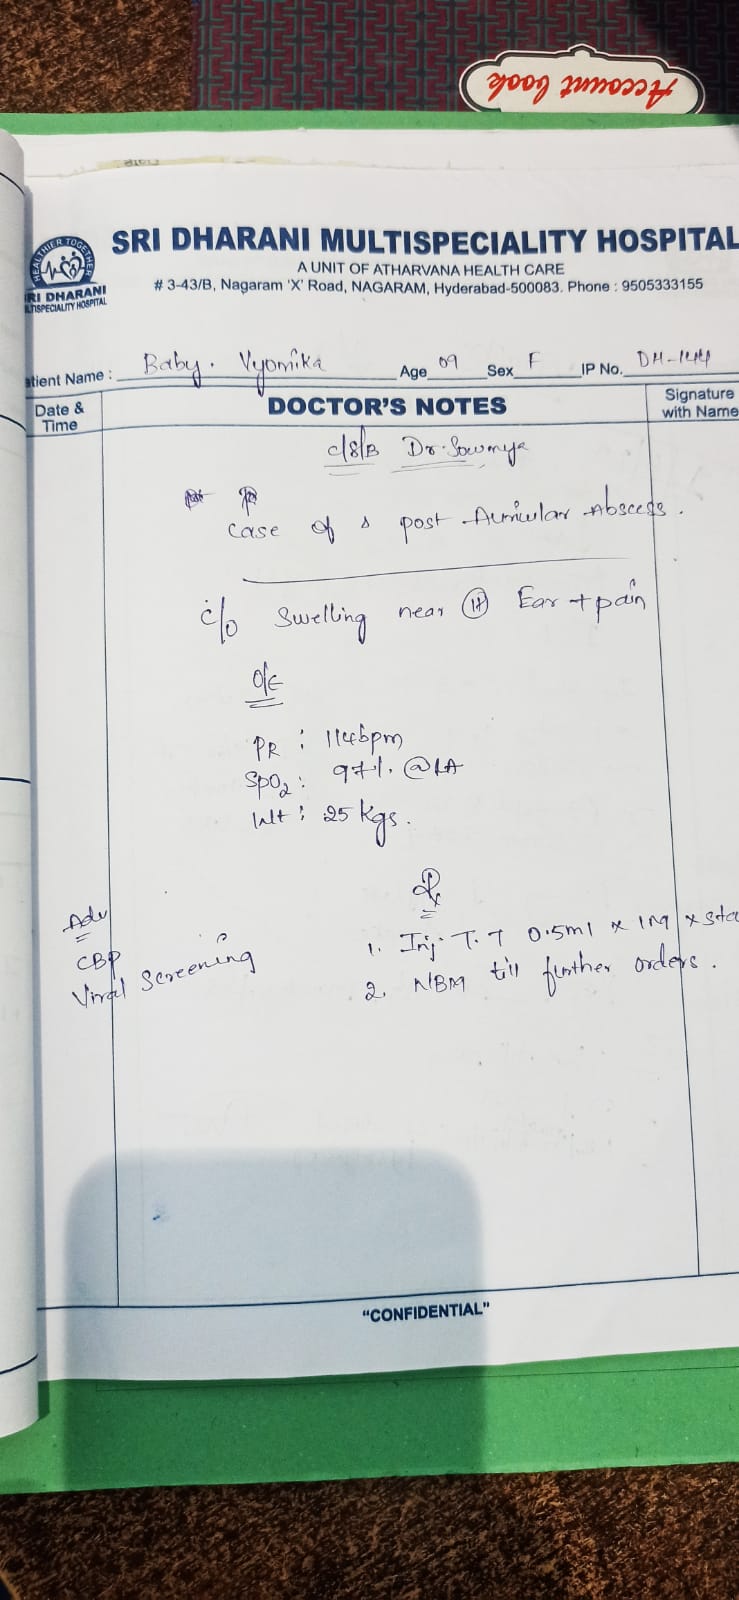 Account book
HEALTHIER TOGETHER
RI DHARANI
LTISPECIALITY HOSPITAL
SRI DHARANI MULTISPECIALITY HOSPITAL
A UNIT OF ATHARVANA HEALTH CARE
# 3-43/B, Nagaram 'X' Road, NAGARAM, Hyderabad-500083. Phone : 9505333155
atient Name : Baby. Vyomika Age 09 Sex F IP No. DH-144
Date & Time
DOCTOR'S NOTES
Signature with Name
c/s/B Dr. Sowmya
case of post Auricular Abscess.
c/o Swelling near Ear + pain
O/E
PR : 114bpm
SpO2 : 97%. @RA
Wt : 25 kgs.
Adv
CBP
Viral Screening
Rx
1. Inj. T.T 0.5ml x IM x sta
2. NBM till further orders.
"CONFIDENTIAL"